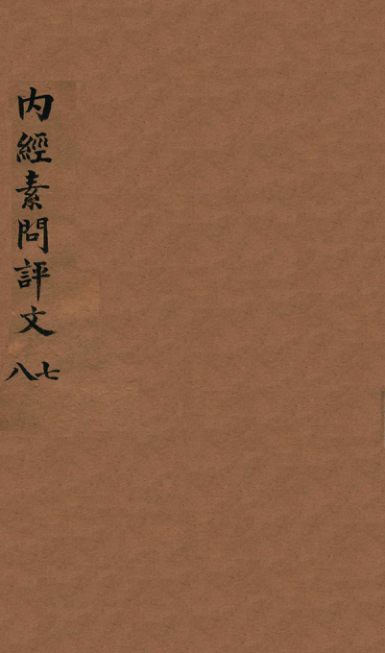 內經素問評文
七八